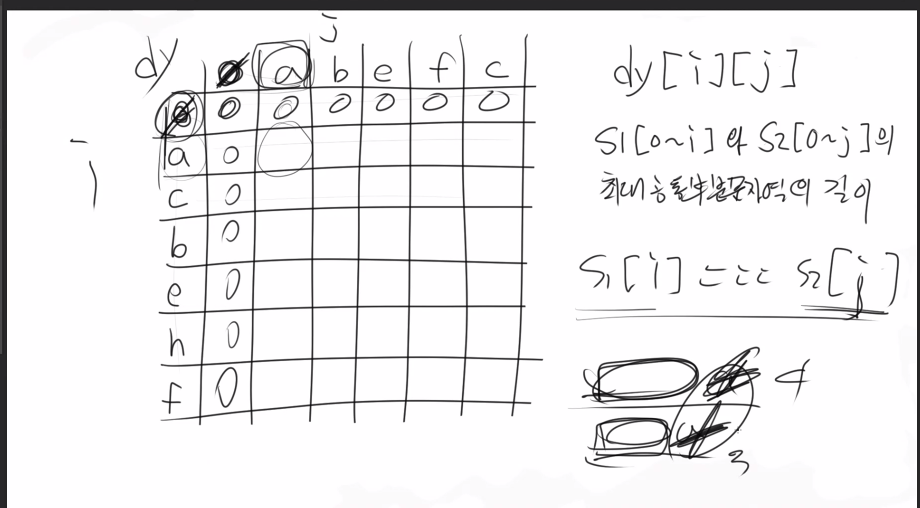 j
dy
ø a b e f c
ø 0 0 0 0 0 0
i
a 0
c 0
b 0
e 0
h 0
f 0
dy[i][j]
S1[0~i]와 S2[0~j]의
최대공통부분문자열의 길이
S1[i] === S2[j]
4
3